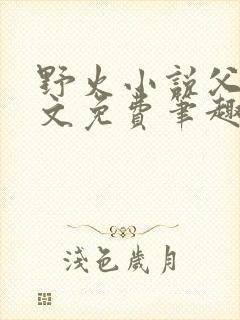 野火小说父
文免费笔趣
浅色歲月